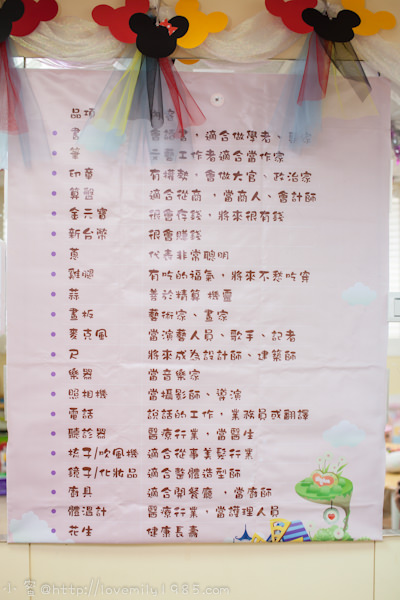 品項 內容
書 會讀書，適合做學者、專家
筆 文書工作者適合當作家
印章 有權勢，會做大官、政治家
算盤 適合從商，當商人、會計師
金元寶 很會存錢，將來很有錢
新台幣 很會賺錢
蔥 代表非常聰明
雞腿 有吃的福氣，將來不愁吃穿
蒜 善於精算 機靈
畫板 藝術家、畫家
麥克風 當演藝人員、歌手、記者
尺 將來成為設計師、建築師
樂器 當音樂家
照相機 當攝影師、導演
電話 說話的工作，業務員或翻譯
聽診器 醫療行業，當醫生
梳子/吹風機 適合從事美髮行業
鏡子/化妝品 適合整體造型師
廚具 適合開餐廳，當廚師
體溫計 醫療行業，當護理人員
花生 健康長壽
@http://lovemilu1985.com